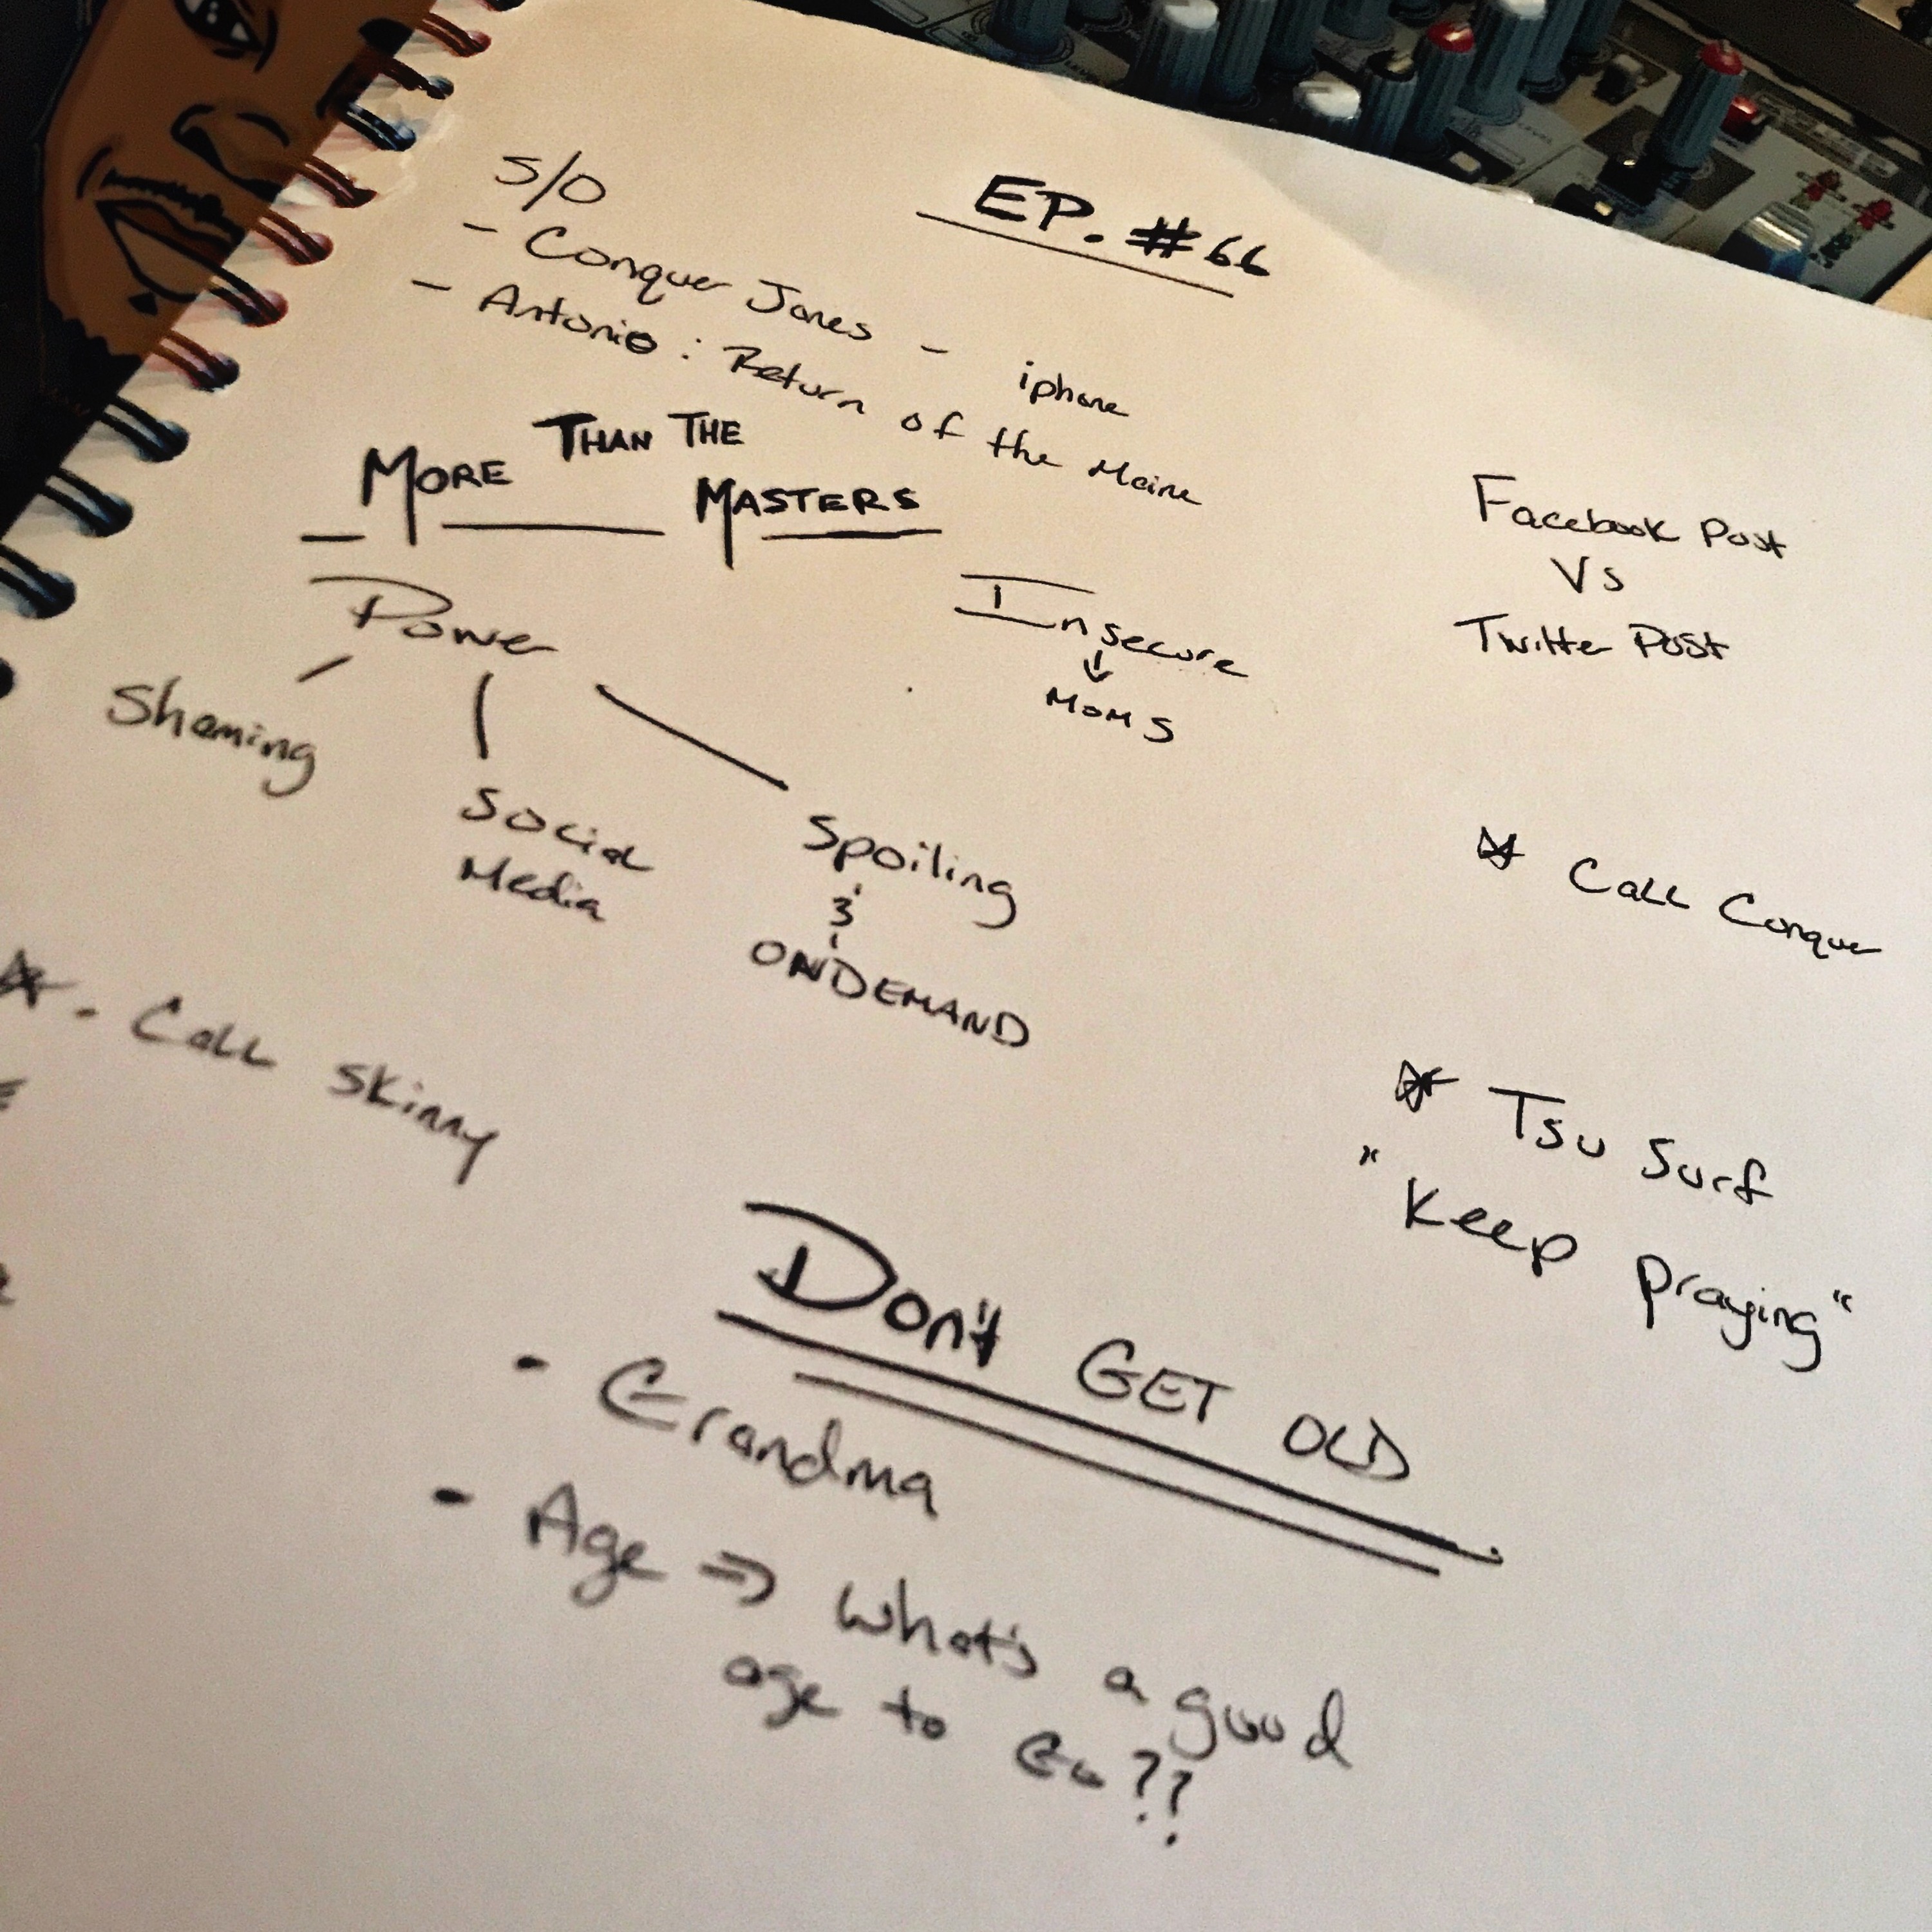 EP. #66
S/O
- Conquer Jones - iphone
- Antonio : Return of the Maine
MORE THAN THE MASTERS
Power
Shaming
Social
Media
Spoiling
&
ONDEMAND
Insecure
MOMS
Facebook Post
Vs
Twitter Post
Call Conquer
- Call Skinny
Tsu Surf
"Keep praying"
Don't GET OLD
- Grandma
- Age ⇒ What's a good
age to Go??